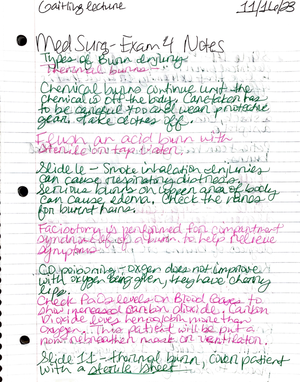 Gaitling lecture 11/16/23
Med Surg - Exam 4 Notes
Types of Burn Injury
Thermal burns
Chemical burns continue until the
chemical is off the body. Caretaker has
to be careful too and wear protective
gear. Take clothes off.
Flush an acid burn with
sterile or tap water.
Slide 6 - Smoke inhalation injuries
can cause respiratory distress.
Serious burns on upper area of body
can cause edema. Check the nares
for burnt hairs.
Faciotomy is performed for compartment
syndrome of a burn to help relieve
symptoms
CO poisoning - oxygen does not improve
with oxygen being given, they have cherry
lips.
Check PaO2 levels on Blood Gases to
show increased carbon dioxide. Carbon
Dioxide loves hemoglobin more than
oxygen. This patient will be put a
non-rebreather mask or ventilator.
Slide 11 - thermal burn, cover patient
with a sterile sheet